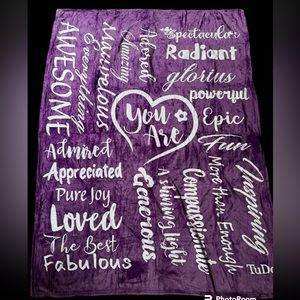 AWESOME
Everything
Marvelous
Amazing
Adored
Spectacular
Radiant
glorius
powerful
Epic
Fun
You
Are
Admired
Appreciated
Pure Joy
Loved
The Best
Fabulous
Generous
A shining light
Compassionate
More than Enough
Inspiring
TuDo
PhotoRoom